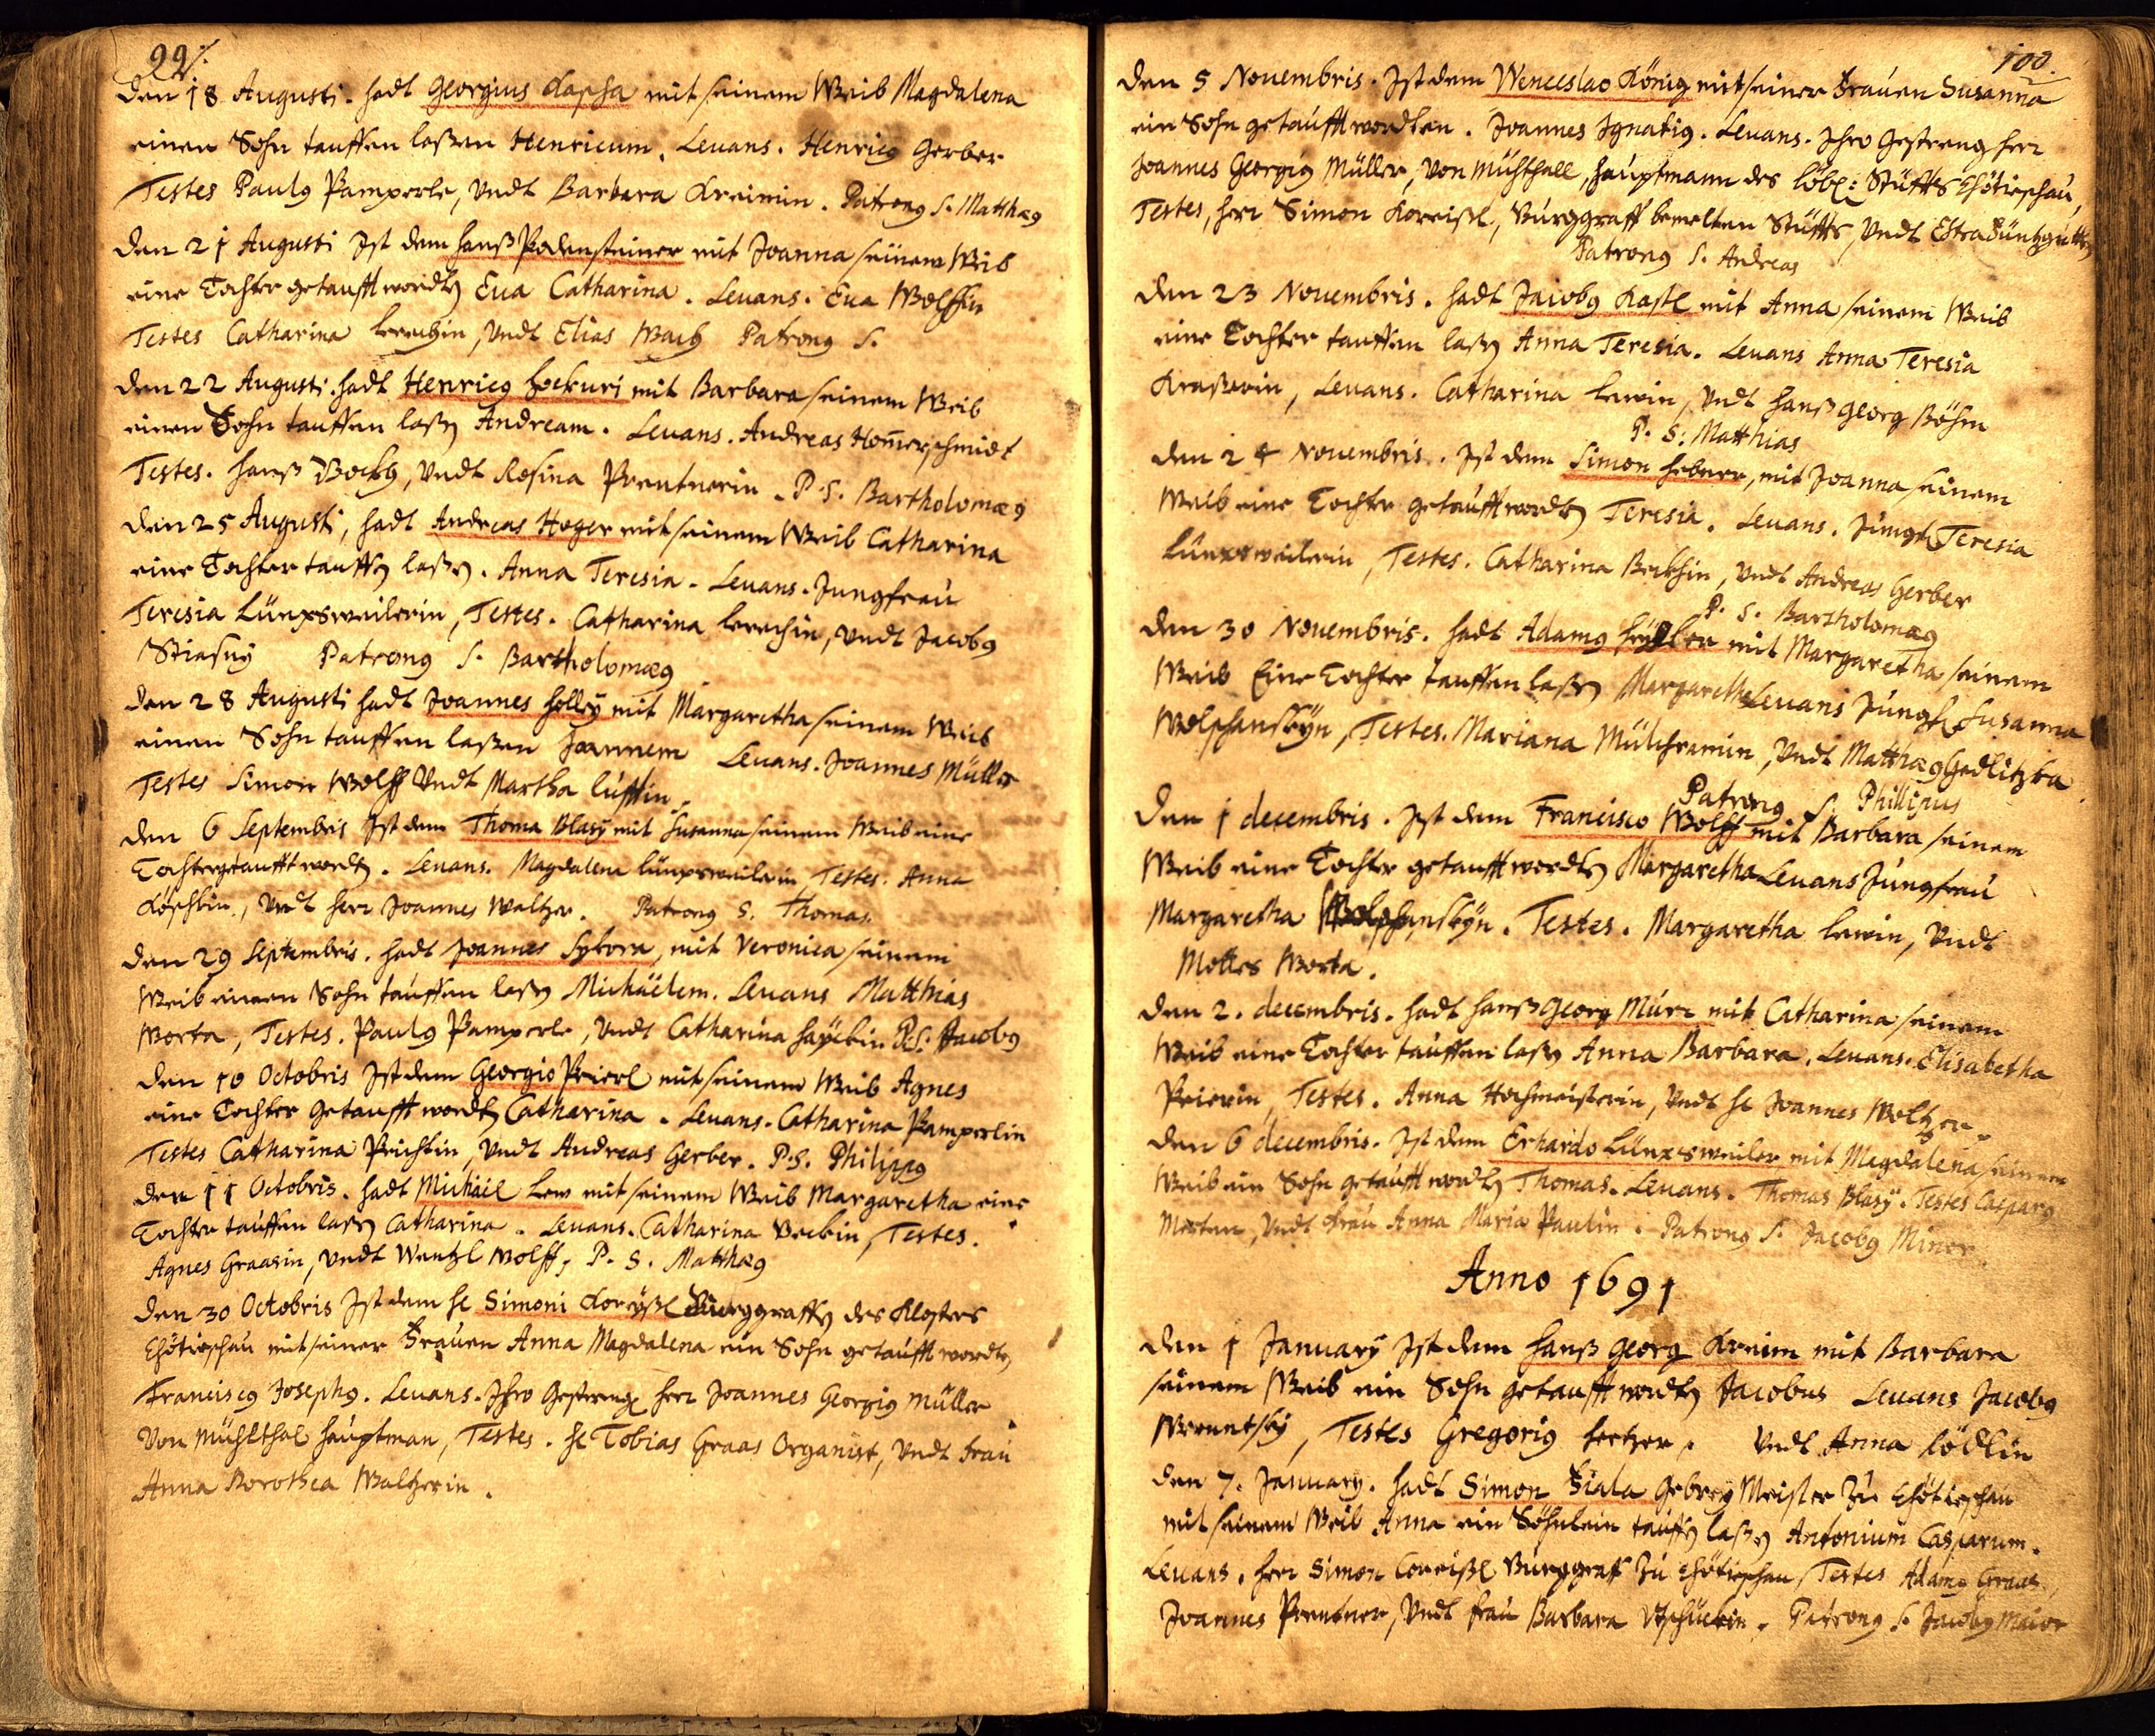 99
Den 18 Augusti. hadt Georgius Kapsa mit seinem Weib Magdalena
einen Sohn tauffen laßen Henricum. Leuans. Henricq Gerber
Testes Paulq Pamperle, Undt Barbara Kreimin. Patronq S. Matthæq
Den 21 Augusti Ist dem Hanß Podensteiner mit Joanna seinem Weib
eine Tochter getaufft wordten Eua Catharina. Leuans. Eua Wolffin
Testes Catharina Lerchin, Undt Elias Patronq S.
Den 22 Augusti. hadt Henricq Hockuri mit Barbara seinem Weib
einen Sohn tauffen laßen Andream. Leuans. Andreas Homerschmidt
Testes. Hanß Böckh, Undt Rosina Prentnerin. P. S. Bartholomæq
Den 25 Augusti, hadt Andreas Hoger mit seinem Weib Catharina
eine Tochter tauffen laßen. Anna Teresia. Leuans. Jungfrau
Teresia Lünxsweilerin, Testes. Catharina Lerchin, Undt Jacobq
Stiasny Patronq S. Bartholomæq
Den 28 Augusti hadt Joannes Holley mit Margaretha seinem Weib
einen Sohn tauffen laßen Joannem Leuans. Joannes Müller
Testes Simon Wolff Undt Martha Lufftin.
Den 6 Septembris Ist dem Thoma Blasy mit Susanna seinem Weib eine
Tochter getaufft wordten. Leuans. Magdalena Lünxsweilerin Testes. Anna
Köschlin, Undt Herr Joannes Waltzer. Patronq S. Thomas.
Den 29 Septembris. hadt Joannes Sykora, mit Veronica seinem
Weib einen Sohn tauffen laßen Michäelem. Leuans Matthias
Worta, Testes. Paulq Pamperle, Undt Catharina P. S. Jacobq
Den 10 Octobris Ist dem Georgio Peierl mit seinem Weib Agnes
eine Tochter getaufft wordten Catharina. Leuans. Catharina Pamperlin
Testes Catharina Peichlin, Undt Andreas Gerber. P. S. Philippq
Den 11 Octobris. hadt Michäel Lew mit seinem Weib Margaretha eine
Tochter tauffen laßen Catharina. Leuans. Catharina Beckin, Testes.
Agnes Graasin, Undt Wentzl Wolff, P. S. Matthæq
Den 30 Octobris Ist dem H. Simoni Koreyßl Burggraffen des Klosters
Chotieschau mit seiner Frauen Anna Magdalena ein Sohn getaufft wordten
Franciscq Josephq. Leuans. Ihro Gestreng Herr Joannes Georgiq Müller
Von Mühlthal Hauptman, Testes. H. Tobias Graas Organist, Undt Frau
Anna Dorothea Waltzerin.
100.
Den 5 Nouembris. Ist dem Wenceslao König mit seiner Frauen Susanna
ein Sohn getaufft wordten. Joannes Ignatiq. Leuans. Ihro Gestreng Herr
Joannes Georgiq Müller, Von Mühlthall, Hauptmann des löbl: Stüffts Chotieschau,
Testes, Herr Simon Koreißl, Burggraff bemelten Stüffts, Undt
Patronq S. Andreas
Den 23 Nouembris. hadt Jacobq Kastl mit Anna seinem Weib
eine Tochter tauffen laßen Anna Teresia. Leuans Anna Teresia
Kraßerin, Leuans. Catharina Lewin, Undt Hanß Georg Böhm
P. S: Matthias
Den 24 Nouembris. Ist dem Simon Hebner, mit Joanna seinem
Weib eine Tochter getaufft wordten Teresia. Leuans. Jungf. Teresia
Lünxsweilerin, Testes. Catharina Beckhin, Undt Andreas Gerber
P. S. Bartholomæq
Den 30 Nouembris. hadt Adamq mit Margaretha seinem
Weib Eine Tochter tauffen laßen Margaretha Leuans Jungf. Susanna
Wolschanskyn, Testes. Mariana Mülchramin, Undt Matthæq Hedlitzka
Patronq S. Philippus
Den 1 decembris. Ist dem Francisco Wolff mit Barbara seinem
Weib eine Tochter getaufft wordten Margaretha Leuans Jungfrau
Margaretha Wolschanskyn. Testes. Margaretha Lewin, Undt
Mattes Worta.
Den 2. decembris. hadt Hanß Georg Murr mit Catharina seinem
Weib eine Tochter tauffen laßen Anna Barbara. Leuans. Elisabetha
Peierin, Testes. Anna Hochmeisterin, Undt H. Joannes Waltzer.
Den 6 decembris. Ist dem Erhardo Lünxsweiler mit Magdalena seinem
Weib ein Sohn getaufft wordten Thomas. Leuans. Thomas Blasy. Testes Casparq
Merten, Undt Frau Anna Maria Paulin. Patronq S. Jacobq Minor
Anno 1691
Den 1 January Ist dem Hanß Georg Kreim mit Barbara
seinem Weib ein Sohn getaufft wordten Jacobus Leuans Jacobq
Testes Gregoriq Hertzer. Undt Anna Födlin
Den 7. January. hadt Simon Fiala Gebrey Meister Zu Chotieschau
mit seinem Weib Anna ein Söhnlein tauffen laßen Antonium Casparum.
Leuans. Herr Simon Coreißl Burggraff Zu Chotieschau Testes Adamq Graas,
Joannes Prentner, Undt Frau Barbara. Patronq S. Jacobq Maior